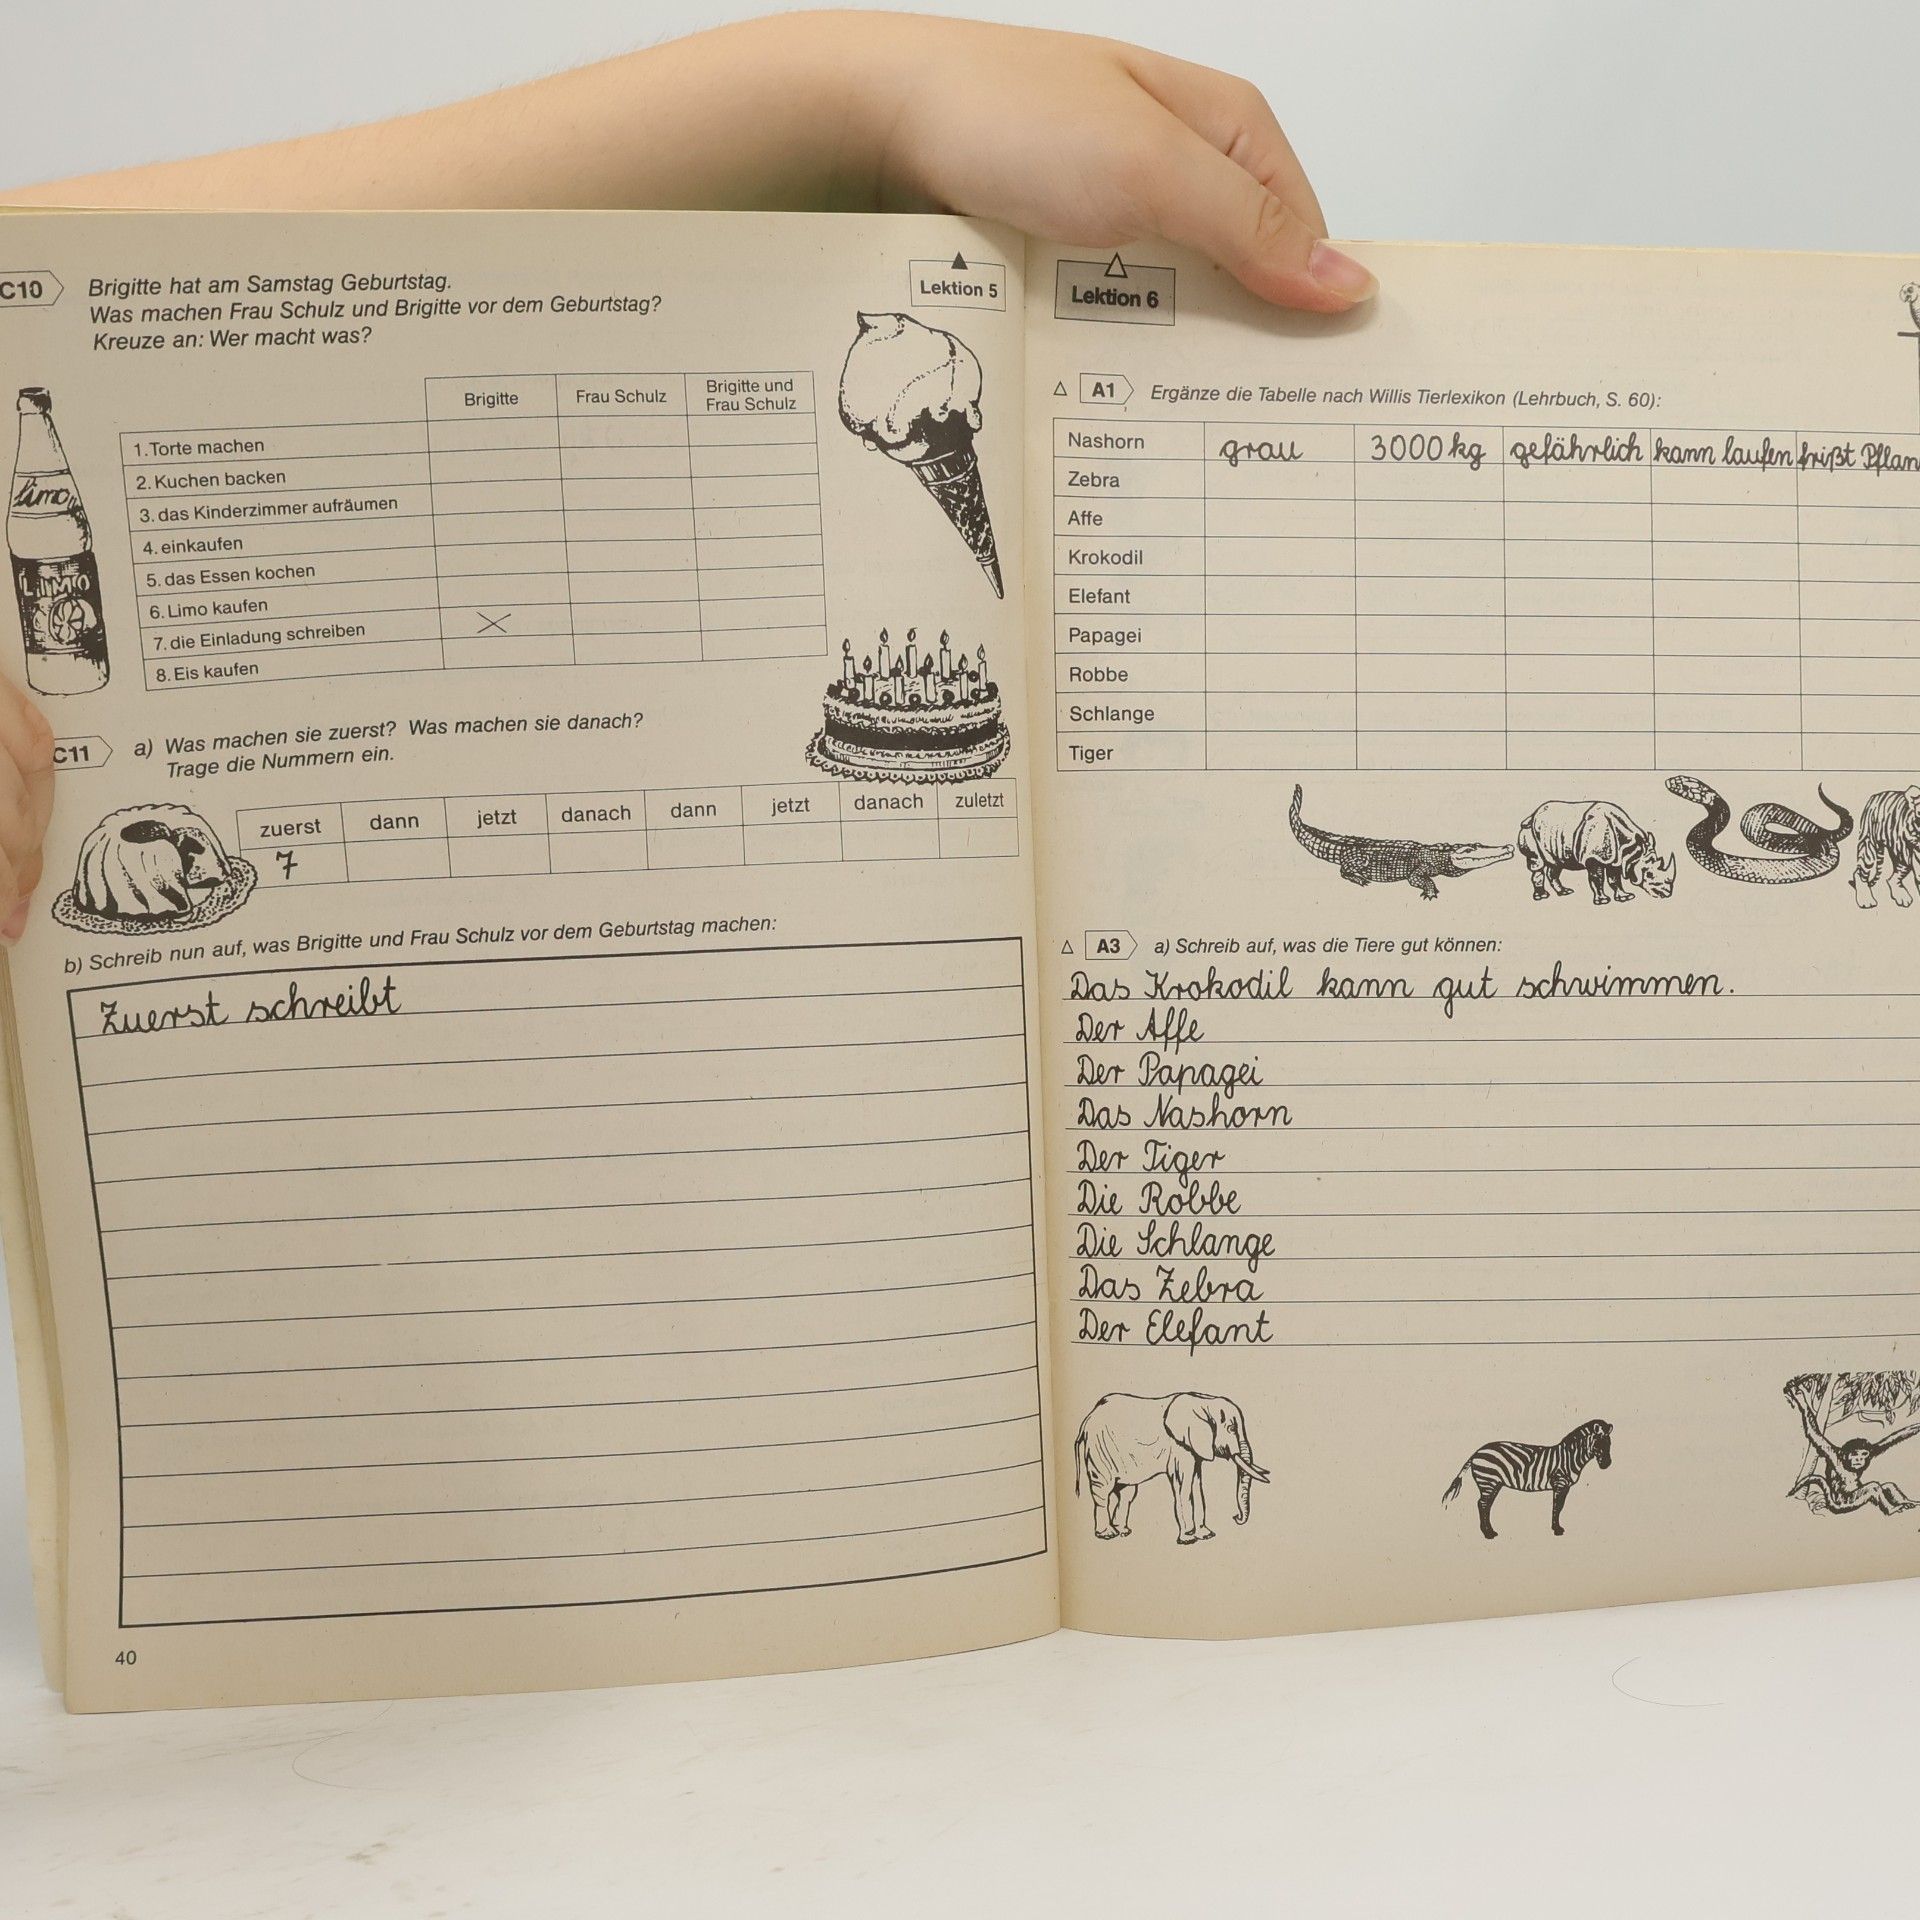 C10
Brigitte hat am Samstag Geburtstag.
Was machen Frau Schulz und Brigitte vor dem Geburtstag?
Kreuze an: Wer macht was?
Lektion 5
Brigitte Frau Schulz Brigitte und Frau Schulz
1. Torte machen
2. Kuchen backen
3. das Kinderzimmer aufräumen
4. einkaufen
5. das Essen kochen
6. Limo kaufen
7. die Einladung schreiben
8. Eis kaufen
Limo
LIMO
C11 a) Was machen sie zuerst? Was machen sie danach?
Trage die Nummern ein.
zuerst dann jetzt danach dann jetzt danach zuletzt
7
b) Schreib nun auf, was Brigitte und Frau Schulz vor dem Geburtstag machen:
Zuerst schreibt
40
Lektion 6
A1 Ergänze die Tabelle nach Willis Tierlexikon (Lehrbuch, S. 60):
Nashorn grau 3000 kg gefährlich kann laufen frißt Pflan
Zebra
Affe
Krokodil
Elefant
Papagei
Robbe
Schlange
Tiger
A3 a) Schreib auf, was die Tiere gut können:
Das Krokodil kann gut schwimmen.
Der Affe
Der Papagei
Das Nashorn
Der Tiger
Die Robbe
Die Schlange
Das Zebra
Der Elefant